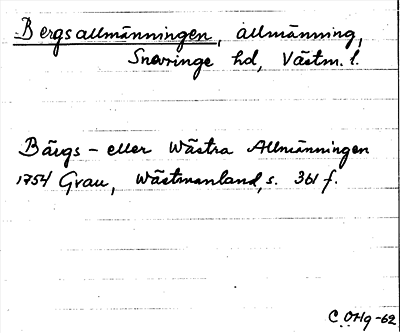 Bergsallmänningen, allmänning,
Snevringe hd, Västm. l.
Bärgs- eller Wästra Allmänningen
1754 Grau, Wästmanland, s. 361 f.
C. OHg -62